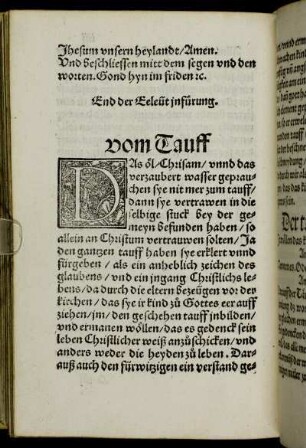 Jhesum vnsern heylandt/Amen.
Vnd beschliessen mitt dem segen vnd den
worten. Gond hyn im friden ꝛc.
End der Eeleüt infürung.
vom Tauff
DAs öl/Chrisam/vnnd das
verzaubert wasser geprau-
chen sye nit mer zum tauff/
dann sye vertrawen in die
selbige stuck bey der ge-
meyn befunden haben/so
allein an Christum vertrauwen solten/Ja
den ganzen tauff haben sye erklert vnnd
fürgeben/als ein anheblich zeichen des
glaubens/vnd ein yngang Christlichs le-
bens/da durch die eltern bezeügen vor der
kirchen/das sye ir kind zů Gottes eer auff
ziehen/jm/den geschehen tauff jnbilden/
vnd ermanen wöllen/das es gedenck sein
leben Christlicher weiß anzůschicken/vnd
anders weder die heyden zů leben. Dar-
auß auch den fürwitzigen ein verstand ge-